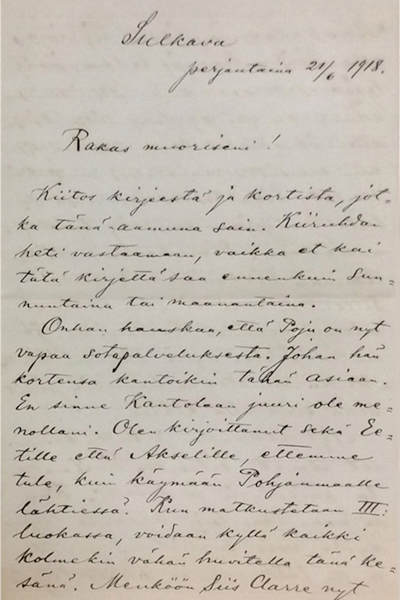 Sulkava
perjantaina 21/6 1918.
Rakas muoriseni!
Kiitos kirjeestä ja kortista, jot-
ka tänä aamuna sain. Kiiruhdan
heti vastaamaan, vaikka et kai
tätä kirjettä saa ennenkuin Sun-
nuntaina tai maanantaina.
Onhan hauskaa, että Poju on nyt
vapaa sotapalveluksesta. Johan hän
kortensa kantoikin tähän asiaan.
En sinne Kantolaan juuri ole me-
nollani. Olen kirjoittanut sekä Ee-
tille että Akselille, ettemme
tule, kuin käymään Pohjanmaalle
lähtiessä. Kun matkustetaan III:
luokassa, voidaan kyllä kaikki
kolmekin vähän huvitella tänä ke-
sänä. Menköön Siis Clarre nyt